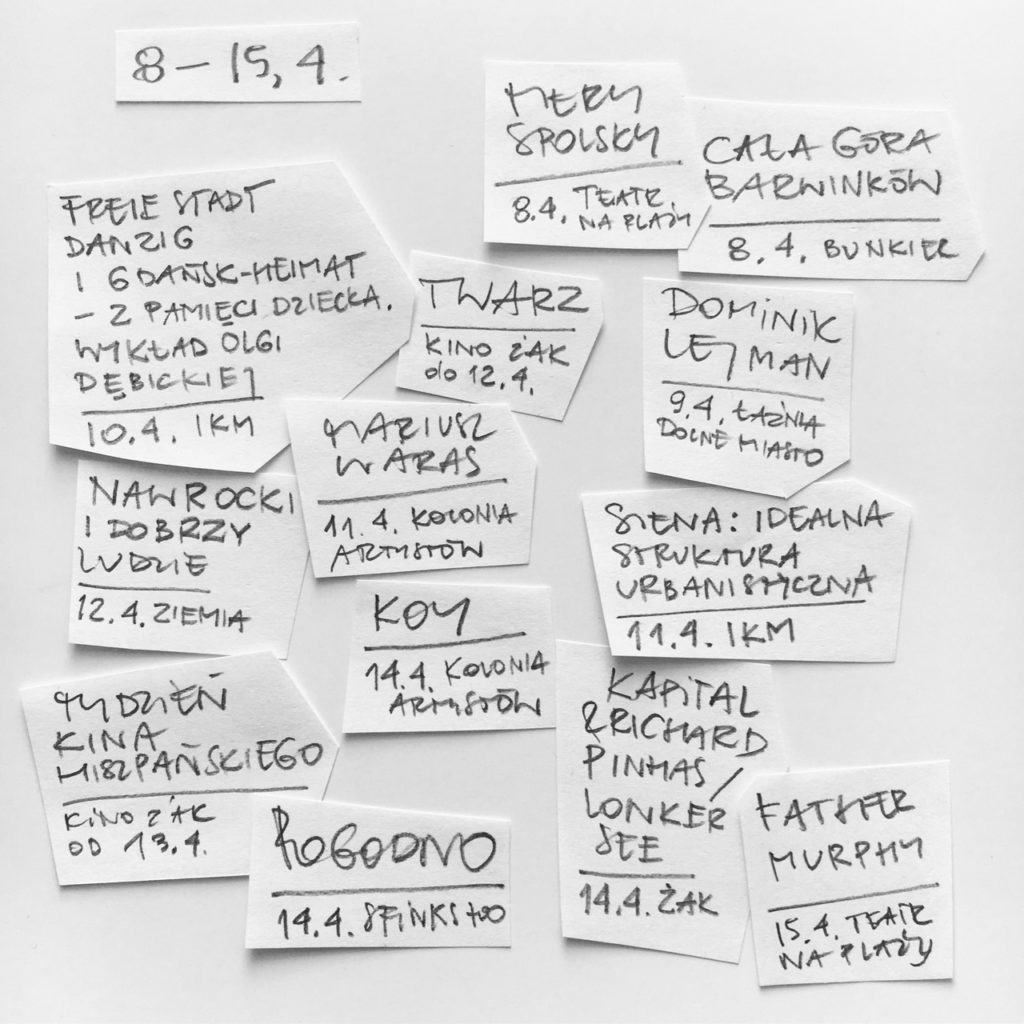 8 – 15, 4.
MERY
SPOLSKY
8.4. TEATR
NA PLAŻY
CAŁA GÓRA
BARWINKÓW
8.4. BUNKIER
FREIE STADT
DANZIG
I GDAŃSK-HEIMAT
– Z PAMIĘCI DZIECKA.
WYKŁAD OLGI
DĘBICKIEJ
10.4. IKM
TWARZ
KINO ŻAK
do 12.4.
DOMINIK
LEJMAN
9.4. ŁAŹNIA
DOLNE MIASTO
MARIUSZ
WARAS
11.4. KOLONIA
ARTYSTÓW
NAWROCKI
I DOBRZY
LUDZIE
12.4. ZIEMIA
SIENA: IDEALNA
STRUKTURA
URBANISTYCZNA
11.4. IKM
KOY
14.4. KOLONIA
ARTYSTÓW
TYDZIEŃ
KINA
HISZPAŃSKIEGO
KINO ŻAK
OD 13.4.
KAPITAL
& RICHARD
PINHAS /
LONKER
SEE
14.4. ŻAK
ROGODNO
14.4. SFINKS 700
FATHER
MURPHY
15.4. TEATR
NA PLAŻY